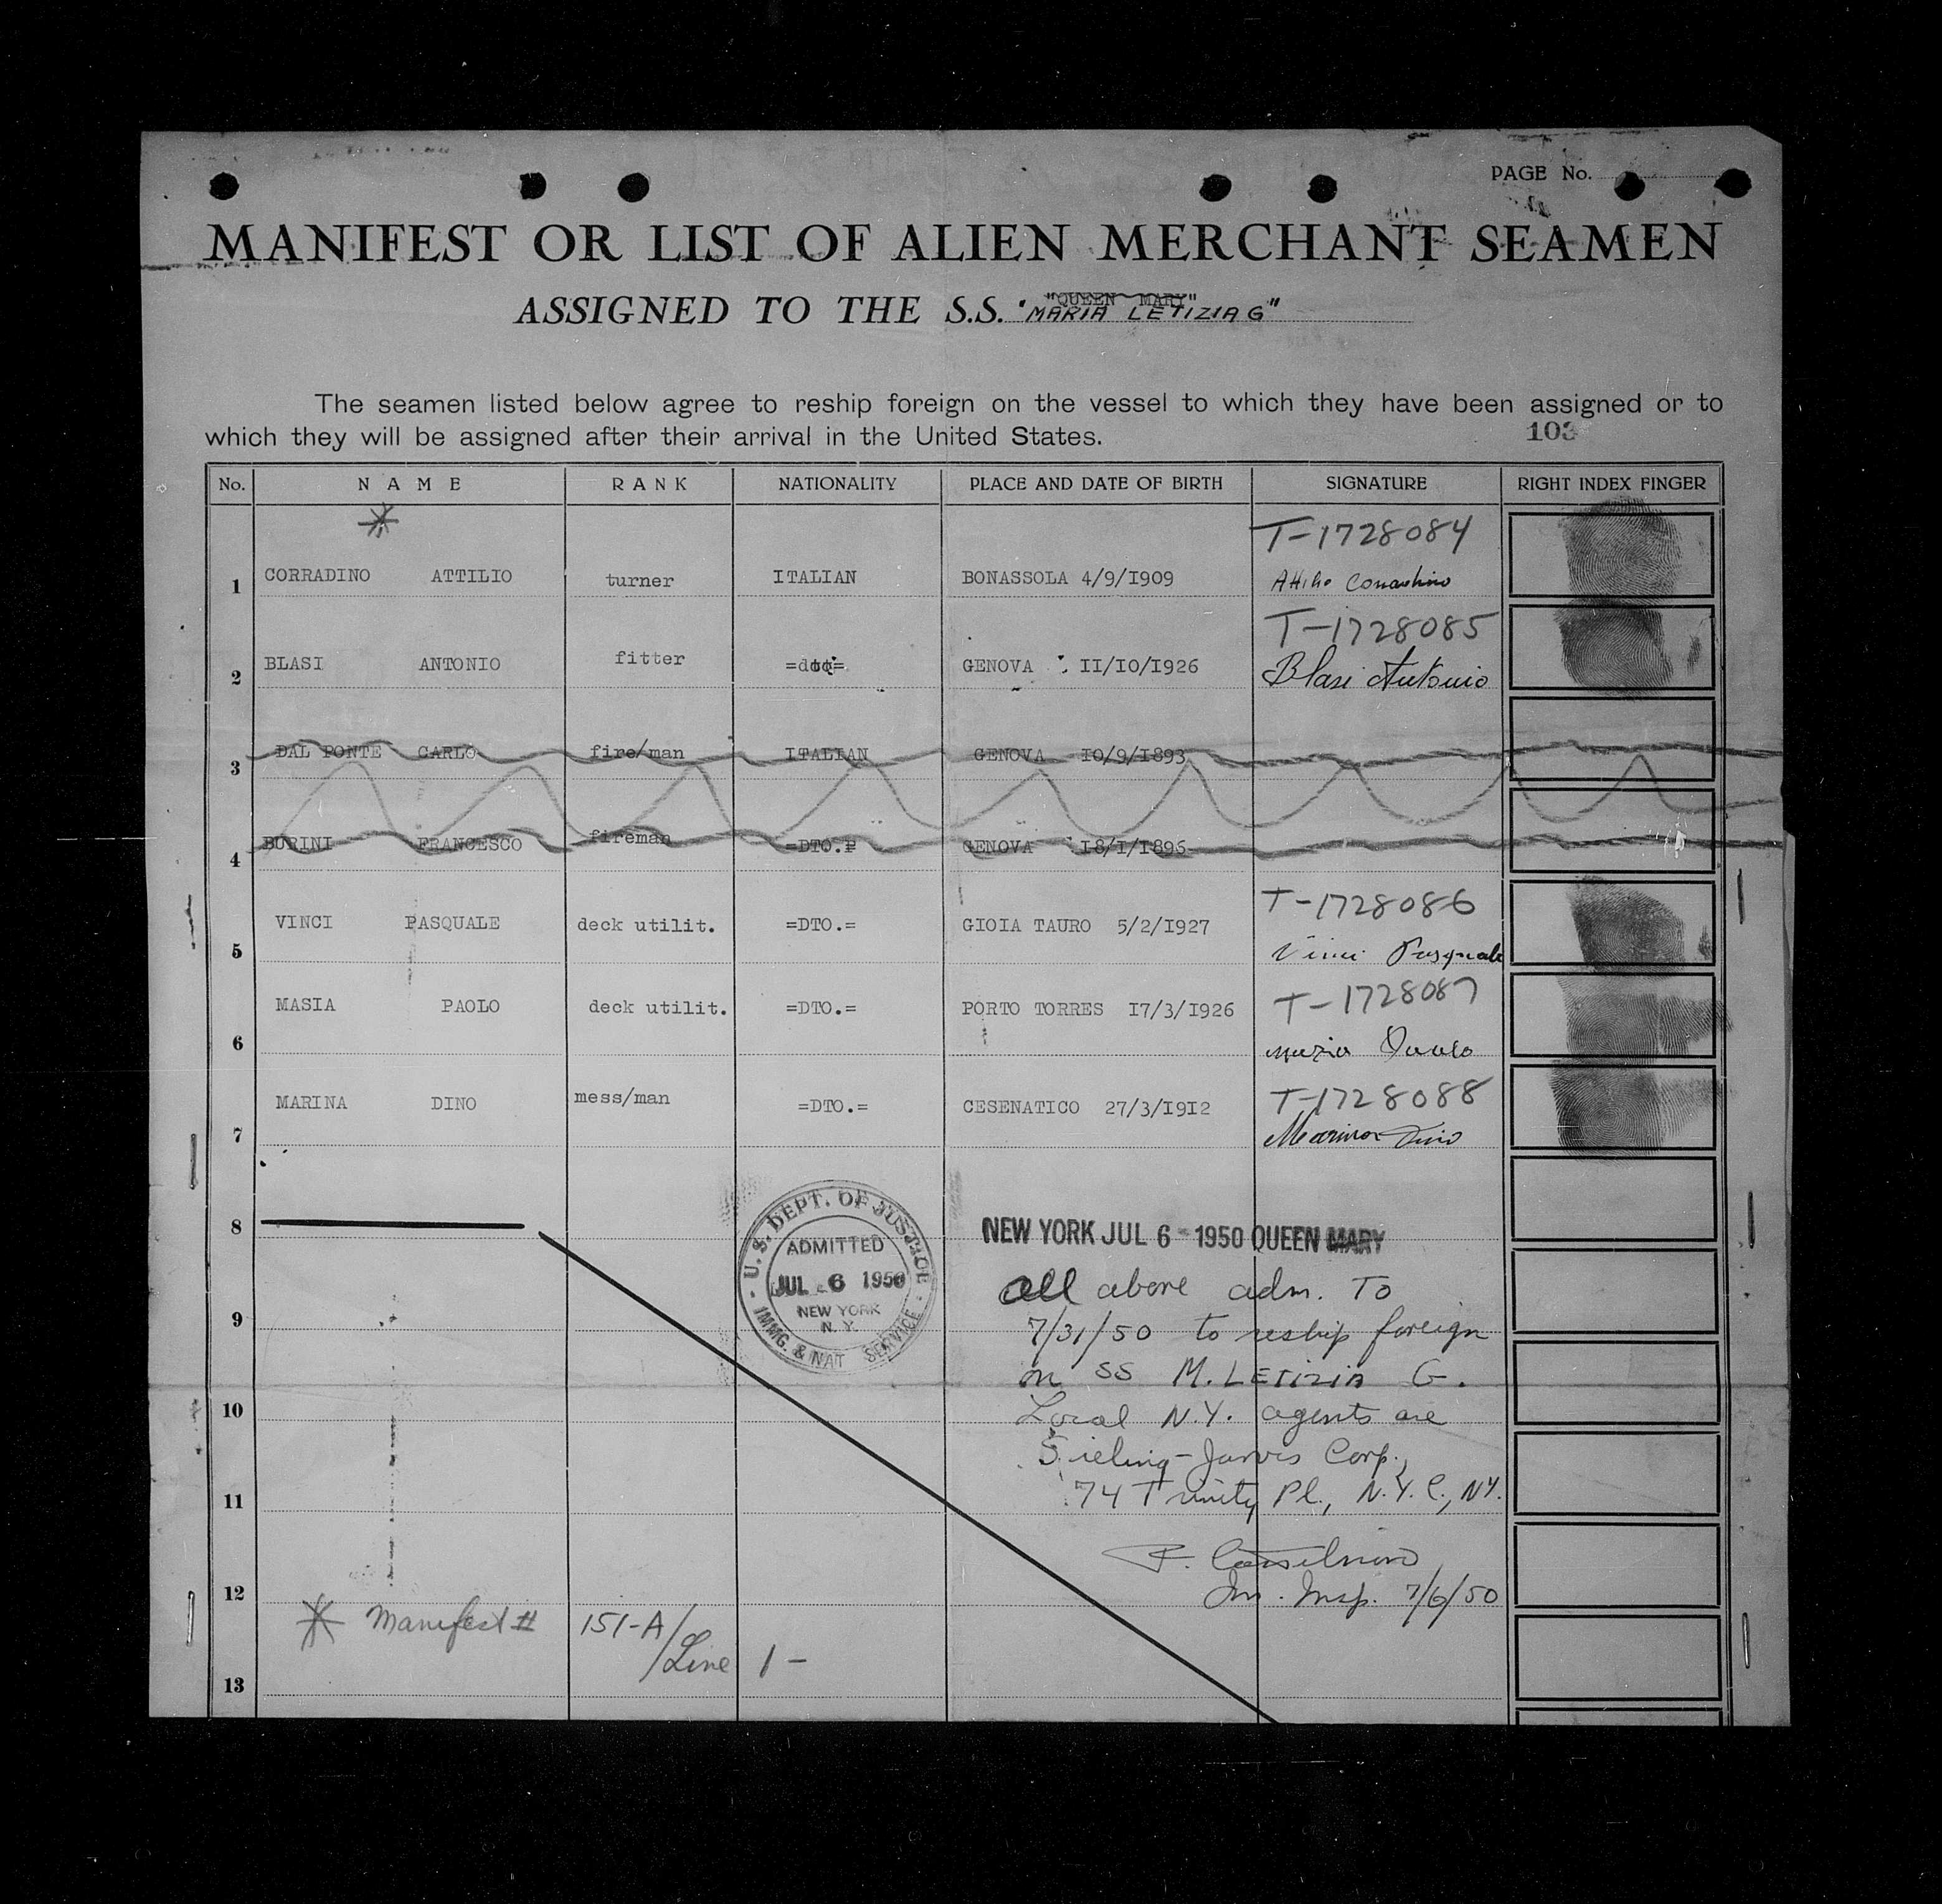 PAGE No.
MANIFEST OR LIST OF ALIEN MERCHANT SEAMEN
"QUEEN MARY"
ASSIGNED TO THE S.S. "MARIA LETIZIA G"
The seamen listed below agree to reship foreign on the vessel to which they have been assigned or to
which they will be assigned after their arrival in the United States.
103
No. NAME RANK NATIONALITY PLACE AND DATE OF BIRTH SIGNATURE RIGHT INDEX FINGER
T-1728084
1 CORRADINO ATTILIO turner ITALIAN BONASSOLA 4/9/I909 Attilio Corradino
T-1728085
2 BLASI ANTONIO fitter GENOVA II/IO/I926 Blasi Antonio
3 DAL PONTE CARLO fire/man ITALIAN GENOVA IO/9/I893
4 BURINI FRANCESCO fireman =DTO.= GENOVA I8/I/I896
T-1728086
5 VINCI PASQUALE deck utilit. =DTO.= GIOIA TAURO 5/2/I927 Vinci Pasquale
T-1728087
6 MASIA PAOLO deck utilit. =DTO.= PORTO TORRES I7/3/I926 Masia Paolo
T-1728088
7 MARINA DINO mess/man =DTO.= CESENATICO 27/3/I9I2 Marina Dino
8
U.S. DEPT. OF JUSTICE
ADMITTED
JUL 6 1950
NEW YORK
N. Y.
IMMG. & NAT SERVICE
NEW YORK JUL 6 - 1950 QUEEN MARY
all above adm. To
9 7/31/50 to reship foreign
on SS M. LETIZIA G.
10 Local N.Y. agents are
Sieling-Jarvis Corp.,
11 74 Trinity Pl., N.Y.C., NY.
12 Im. Insp. 7/6/50
* Manifest # 151-A/
Line 1 -
13